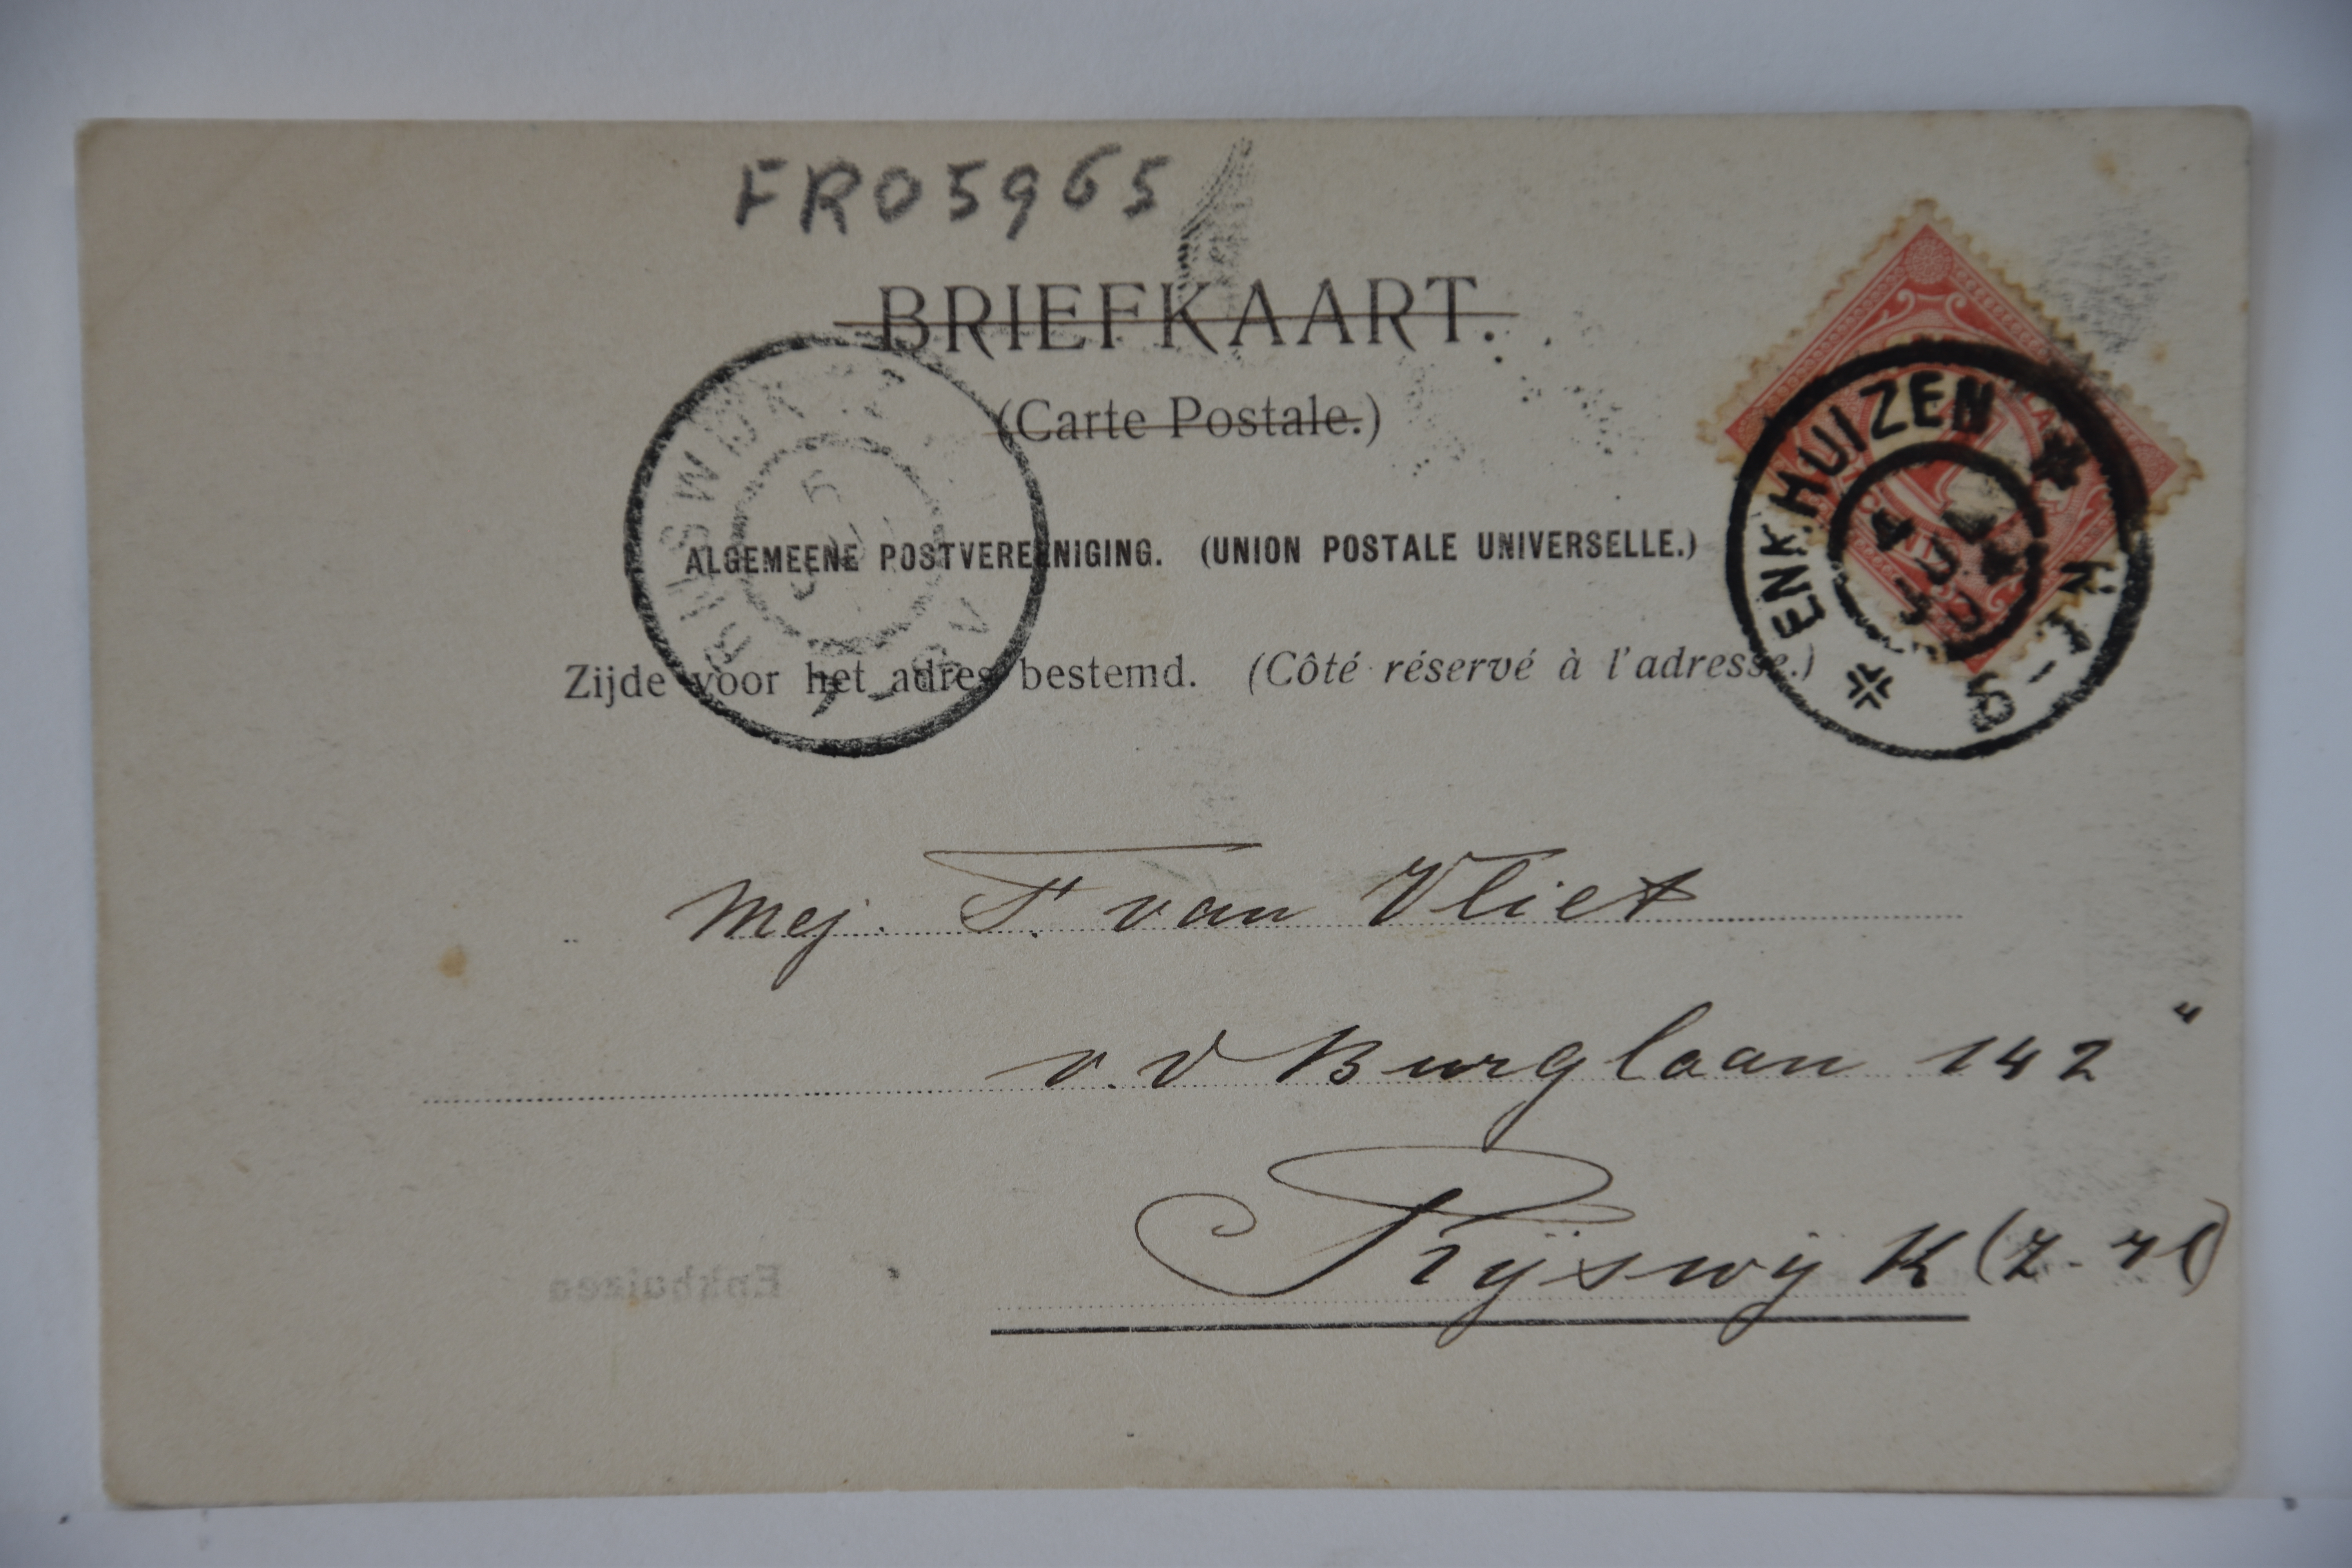 FRO5965
BRIEFKAART.
(Carte Postale.)
ALGEMEENE POSTVEREENIGING. (UNION POSTALE UNIVERSELLE.)
Zijde voor het adres bestemd. (Côté réservé à l'adresse.)
RIJSWIJK
5
ENKHUIZEN
4 JUL
8-12N
Mej. F. van Vliet
v. V Burglaan 142
Rijswijk (Z-H)
Enkhuizen